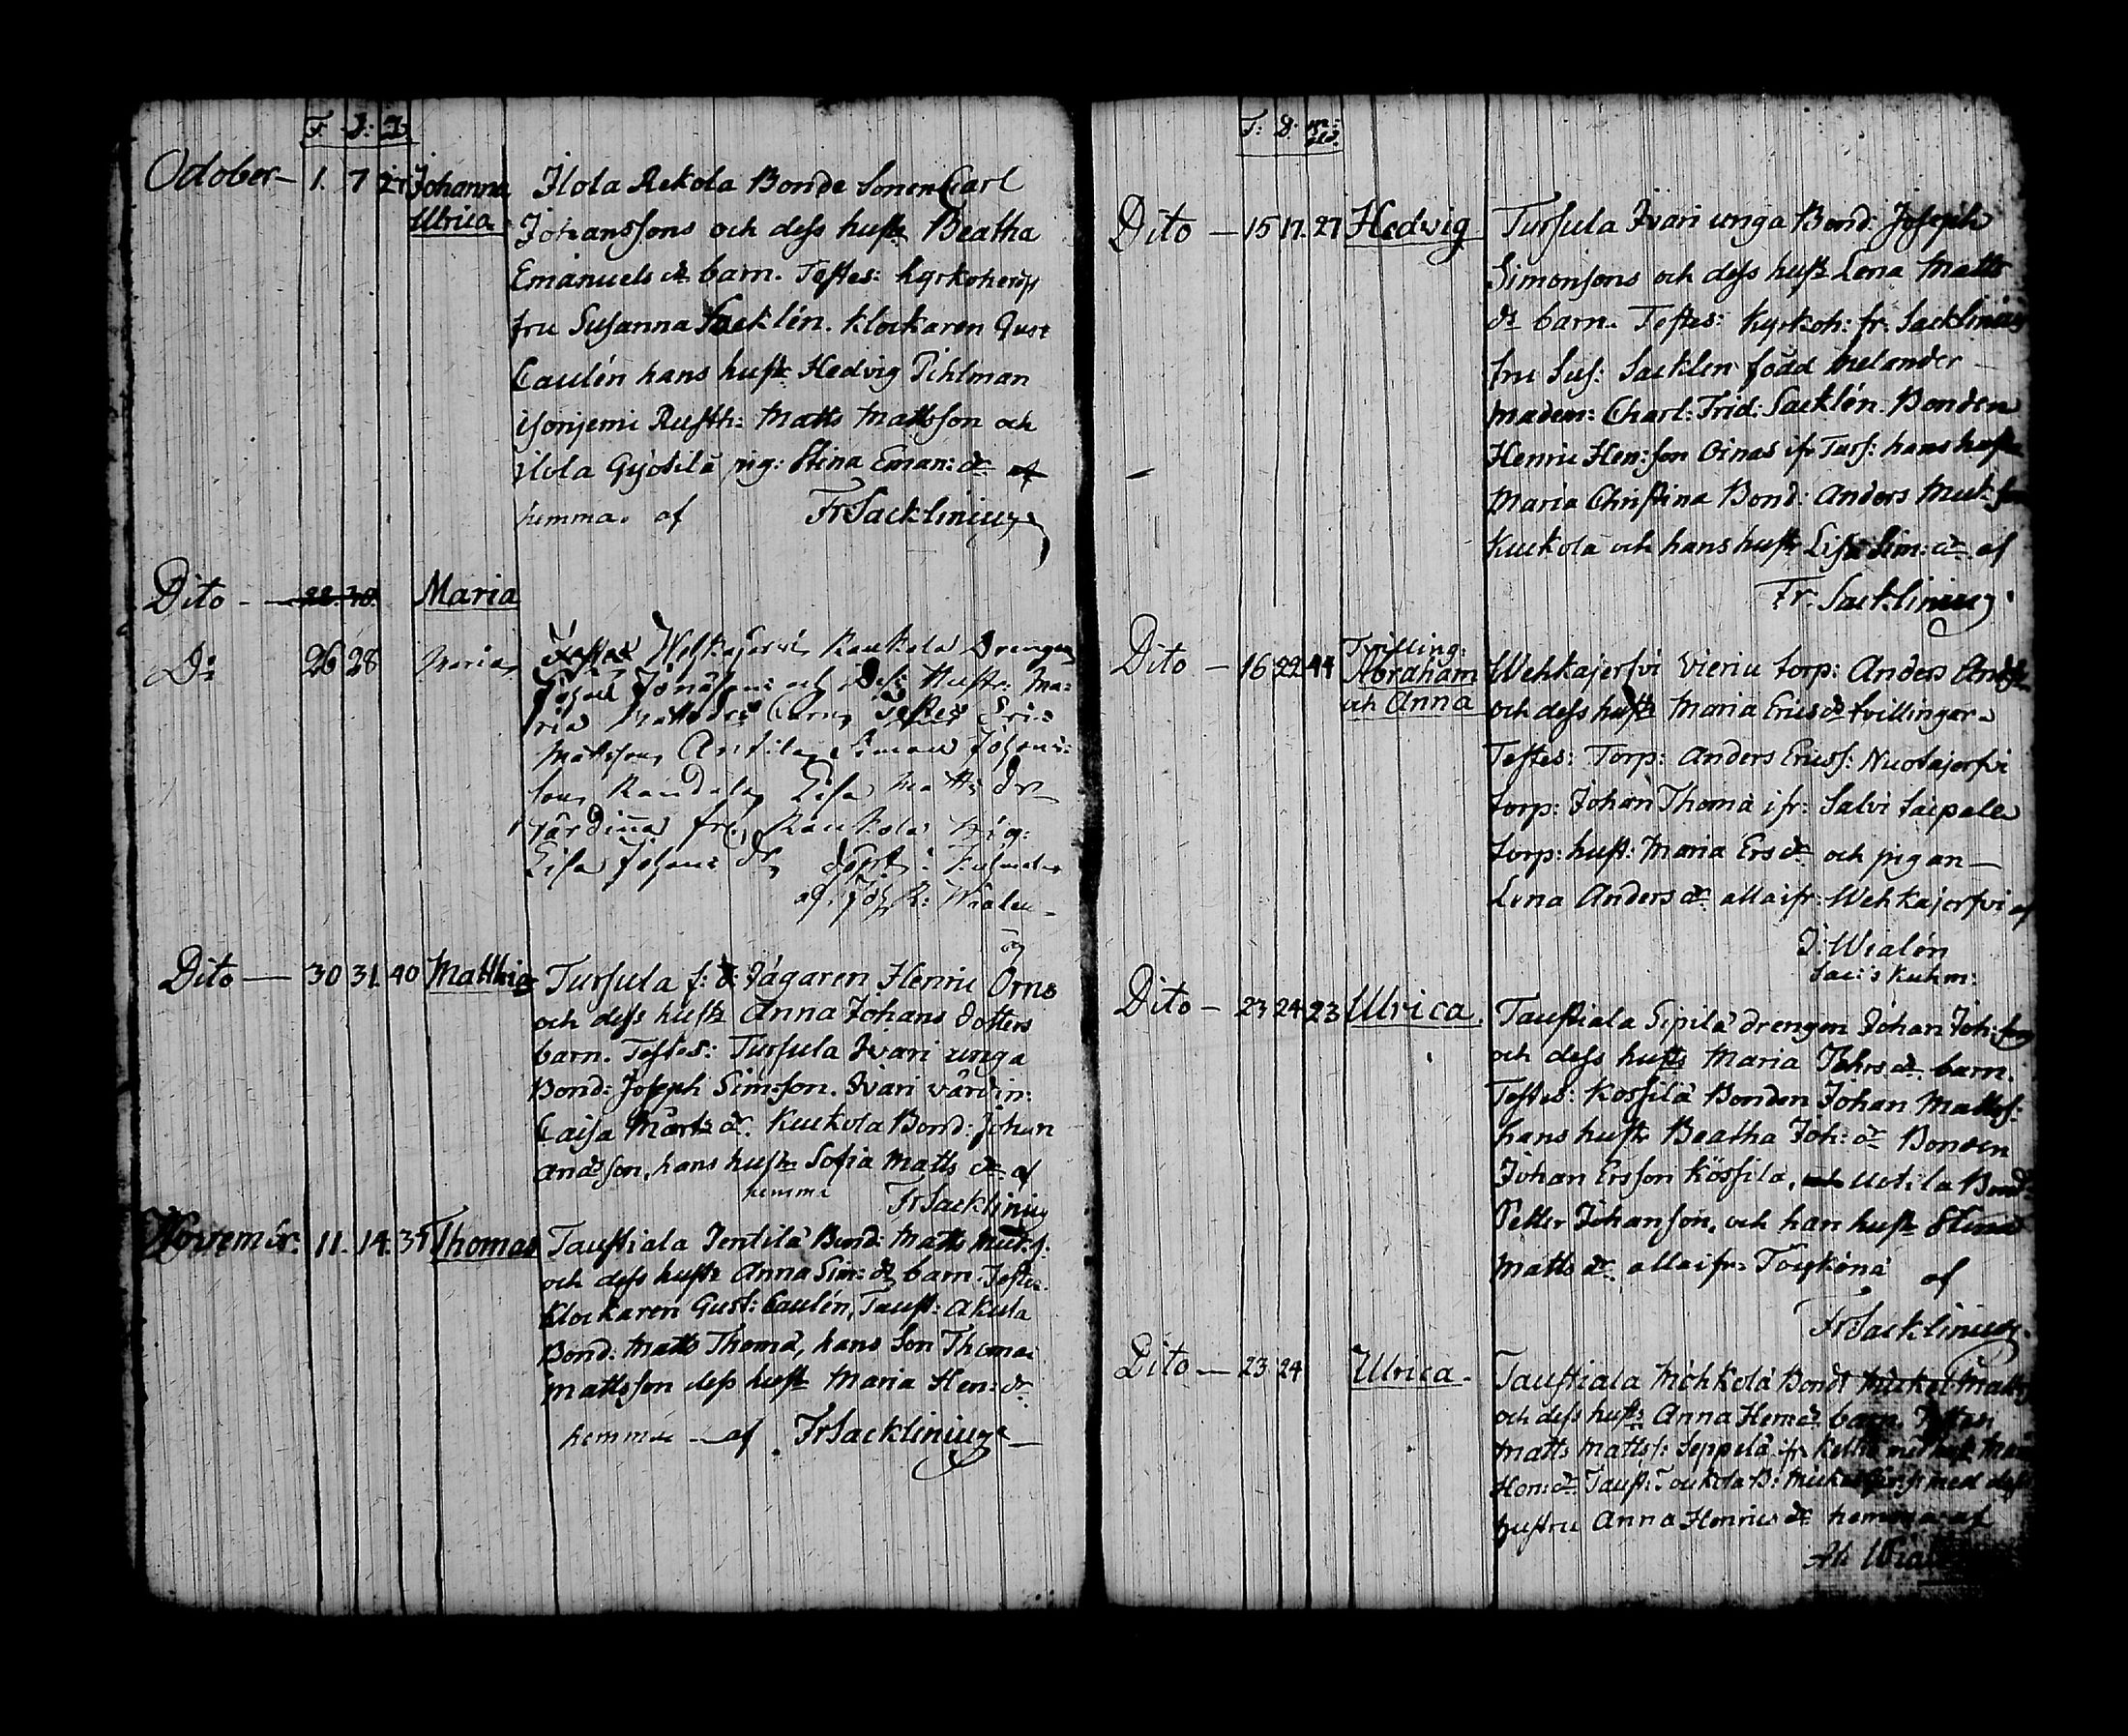 F. D: J:
October — 1. 7 27 Johanna Ilola Rekola Bonde Sonen Carl
Ulrica Johanssons och dess hustr Beatha
Emanuels dr barn. Testes: kyrkoherdes
fru Susanna Sacklén. Klockaren Gust
Caulén hans hustr Hedvig Pihlman
isonjemi Rusth: Matts Mattsson och
ilola Gyöstilä pig: Stina Eman: dr
hemma. af FrSacklinius
Dito - 28. 30. Maria
Do 26 28 Maria Wehkajervi Raukola Drengen
Johan Jonasson: och Dess Hustr: Ma:
ria Mattsdrs Barn, Testes Eric
Mattsson, Antila, Simon Johans:
son, Lisa Matts dr
värdinna frn Raukola pig:
Lisa Johans dr döpt i Kuhmalax
af: Joh R: Wialen
Dito — 30 31 40 Matthias Tursula f: d: Jägaren Henric Örns
och dess hustr Anna Johans dotters
barn. Testes: Tursula Iwari unga
Bond: Joseph Simsson. Iwari värdin:
Caisa Märts dr. Kuckola Bond: Johan
Andsson, hans hustr Sofia Matts dr af
hemma FrSacklinius
Novembr. 11. 14. 35 Thomas Taustiala Pentilä Bond: Matts
och dess hustr Anna Sim: dr barn. Testes.
Klockaren Gust: Caulén, Taust: Akula
Bond: Matts Thomæ, hans Son Thomas
Mattsson dess hustr Maria Hen: dr
hemma — af FrSacklinius —
F: D. m: åld.
Dito — 15 17. 27 Hedvig Tursula Iwari unga Bond: Joseph
Simonsons och dess hustr Lena Matts
dr barn. Testes: Kyrkoh: fr: Sacklinius
fru Sus: Sacklen född Melander —
Madem: Charl: Frid: Sacklén. Bonden
Henric Hen: son Oinas ifr Turs: hans hustr
Maria Christina Bond: Anders Mick: son
Kuckola och hans hustr Lisa Sim: dr af
Fr. Sacklinius
Dito — 16 22 44 Tvilling: Wehkajerfvi Vieriu torp: Anders
Abraham och dess hustr Maria Erics dr tvillingar.
och Anna Testes: Torp: Anders Ericss: Nuotajerfvi
torp: Johan Thomæ ifr: Salvi Saipale
torp: hust: Maria Ers dr och pigan —
Lena Anders dr alla ifr: Wehkajerfvi af
J: Wialén
Sac: i Kuhm:
Dito — 23 24 23 Ulrica. Taustiala Sipilä drengen Johan Joh: son
och dess hustr Maria dr barn.
Testes: Kössilä Bonden Johan Mattss:
hans hustr Beatha Joh: dr Bonden
Johan Ersson Kössilä, Uotila Bond:
Petter Johanson, och han hustr Stina
Matts dr alla ifr: Torkona af
FrSacklinius.
Dito — 23 24 Ulrica. Taustiala Möhkölä Bond Mickel
och dess hustr Anna Hem dr barn. Testes
Matts Mattss: Seppelä ifr med
Hen: dr Taust: Toukola B: Mickel med dess
hustru Anna Henrics dr hemma af